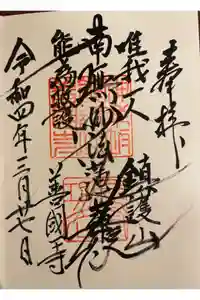 奉拝
鎮護山
唯我一人
南無妙法蓮華経
能為救護
善國寺
令和四年三月廿七日